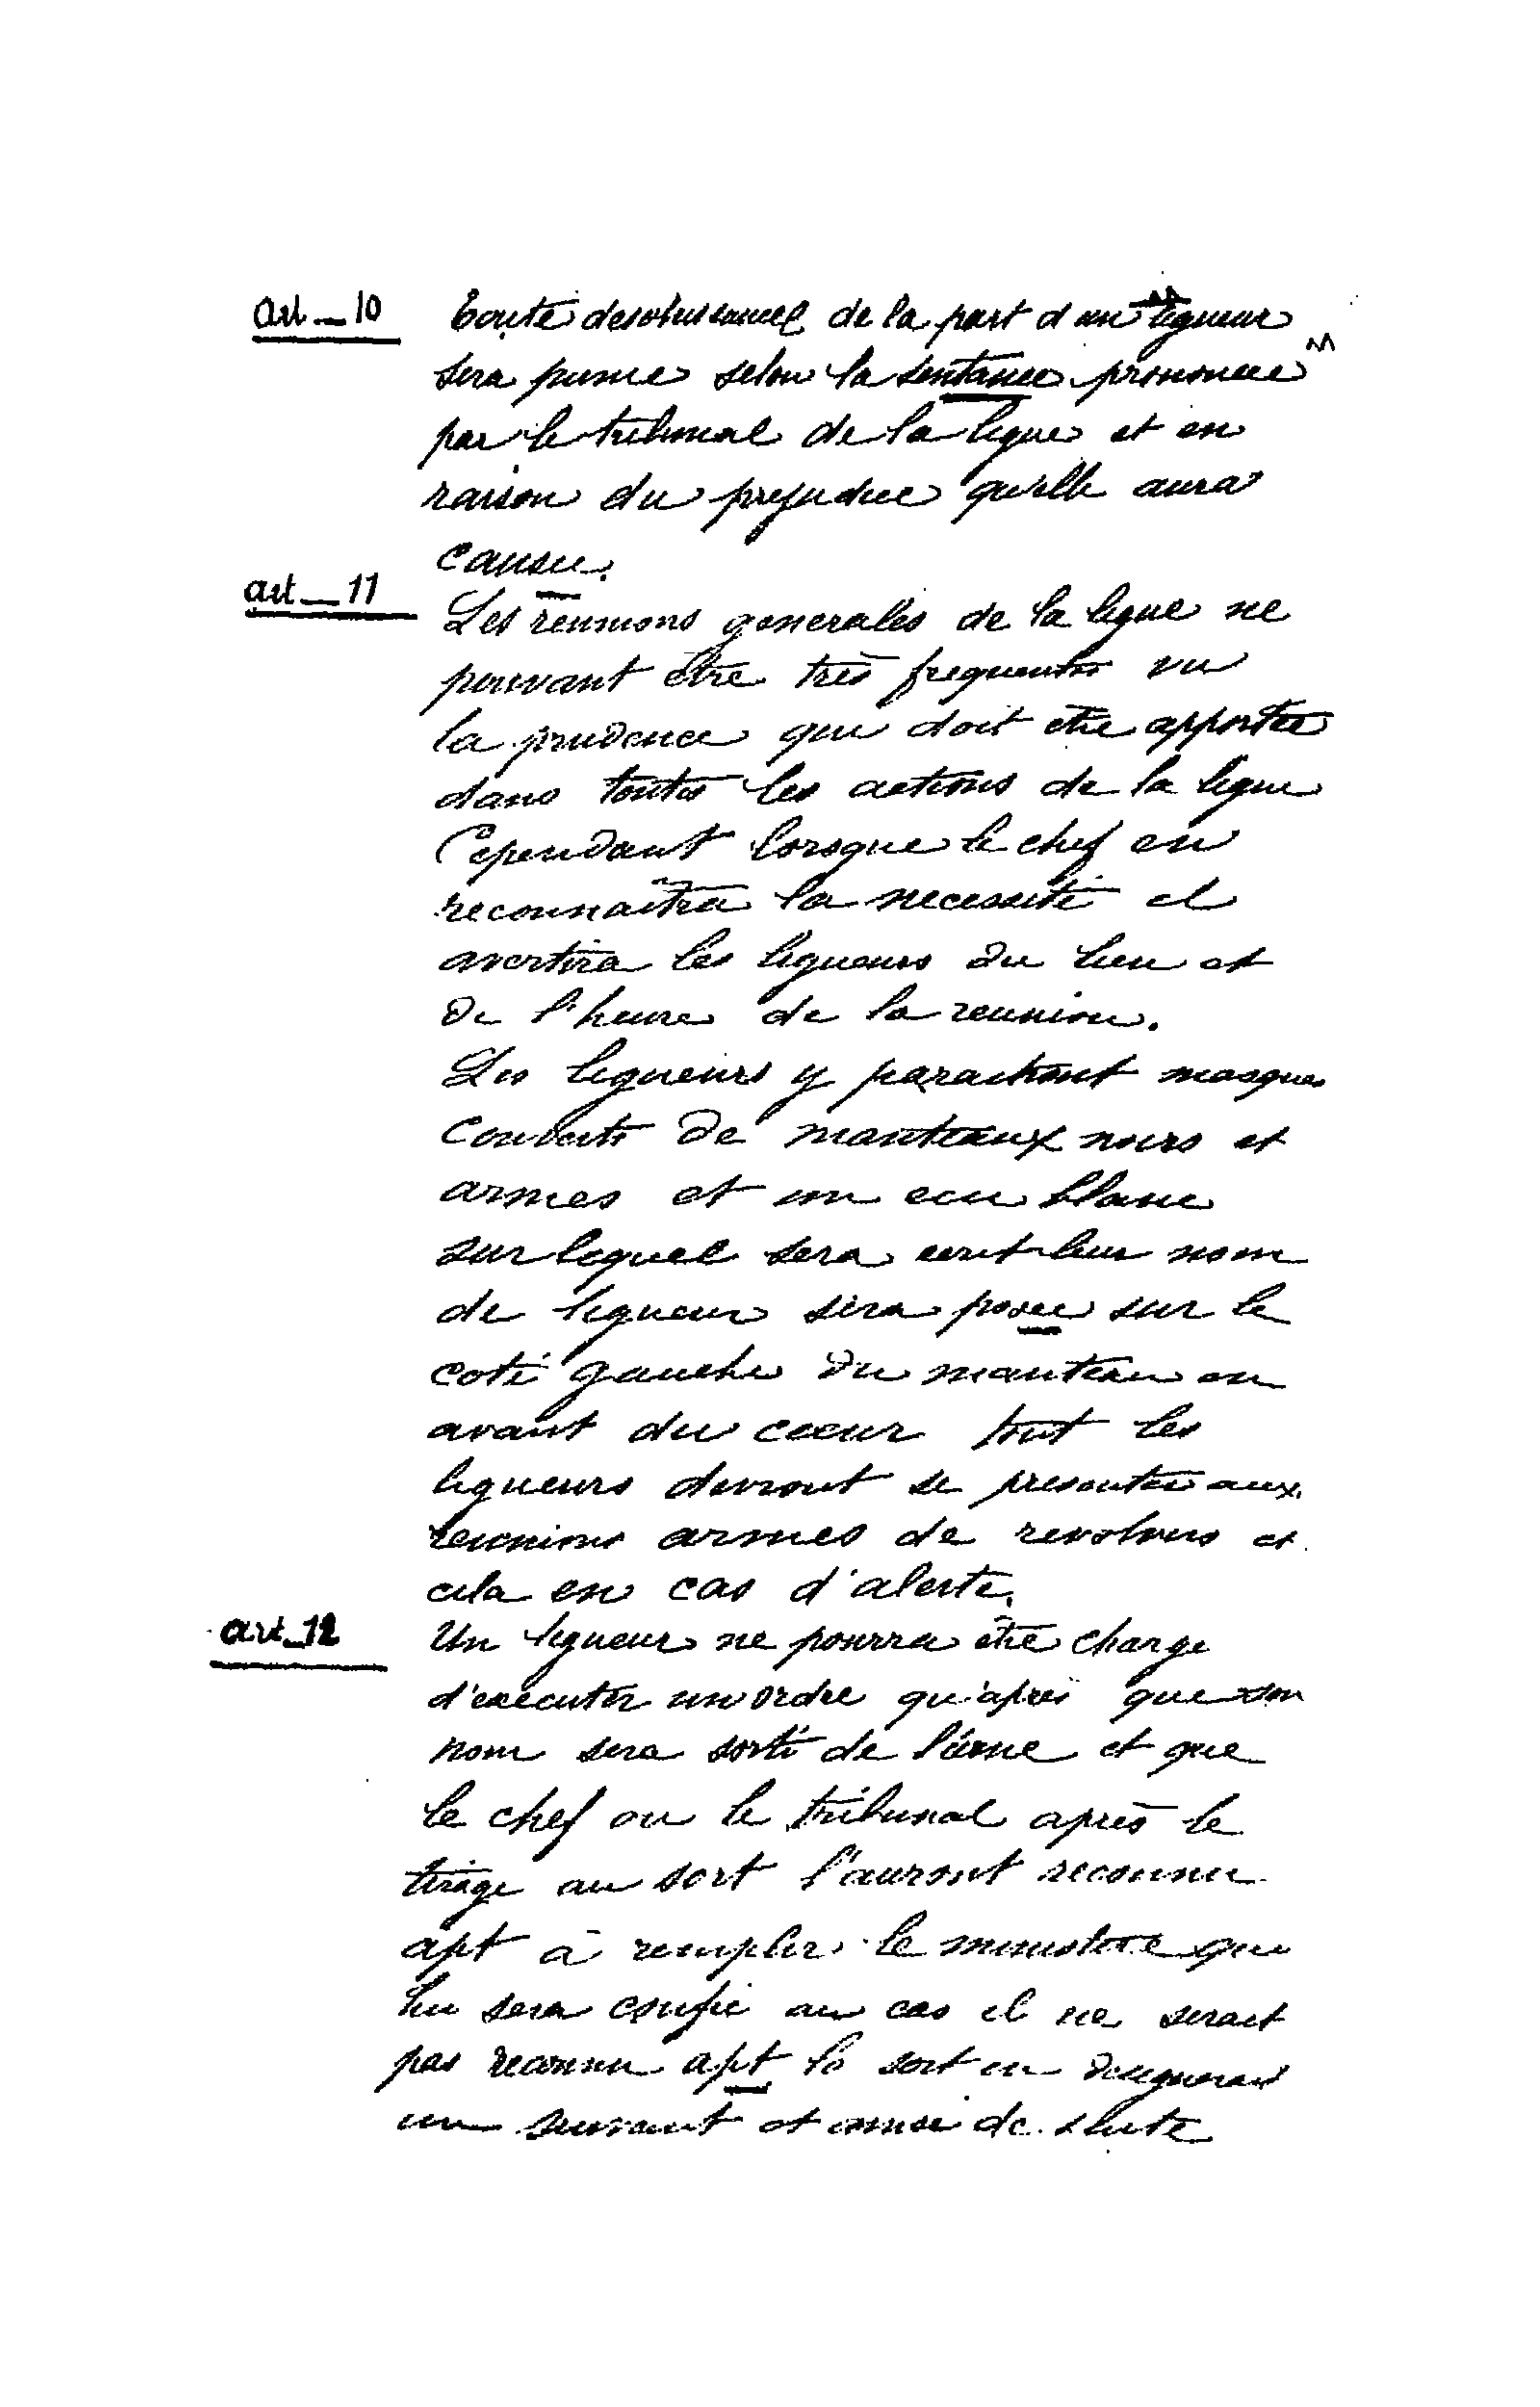 art_10 Toute desobeissance de la part d'un ligueur
sera punie selon la sentance prononcee
par le tribunal de la ligue et en
raison du prejudice qu'elle aura
causee.
art_11
Les reunions generales de la ligue ne
pouvant être très frequentes vu
la prudence qui doit etre apportee
dans toutes les actions de la ligue
Cependant lorsque le chef en
reconnaîtra la necessité il
avertira les ligueurs du lieu et
de l'heure de la reunion.
Les ligueurs y paraitront masques
couverts de manteaux noirs et
armes et un ecu blanc
sur lequel sera ecrit leur nom
de ligueur sera posee sur le
coté gauche du manteau en
avant du coeur tout les
ligueurs devront se presenter aux
reunions armes de revolvers et
cela en cas d'alerte.
art_12 Un ligueur ne pourra être charge
d'executer un ordre qu'après que son
nom sera sorti de l'urne et que
le chef ou le tribunal après le
tirage au sort l'auront reconnu
apt à remplir le ministere qui
lui sera confie au cas il ne serait
pas reconnu apt le sort en
un suivant et ainsi de suite